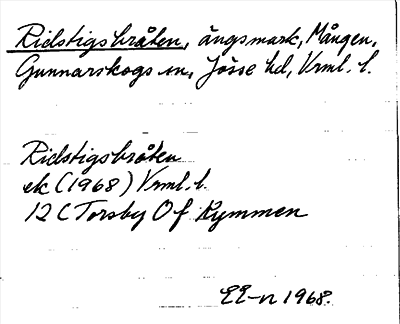 Ridstigsbråten, ängsmark, Mången,
Gunnarskogs sn, Jösse hd, Vrml. l.
Ridstigsbråten
ek (1968) Vrml. l.
12 C Torsby 0 f Kymmen
EE-n 1968.